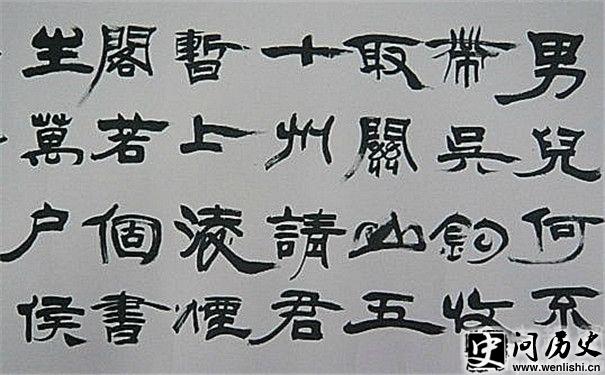 男兒何不
帶吳鈎收
取關山五
十州請君
暫上淩煙
閣若個書
生萬户侯
问历史
www.wenlishi.cn